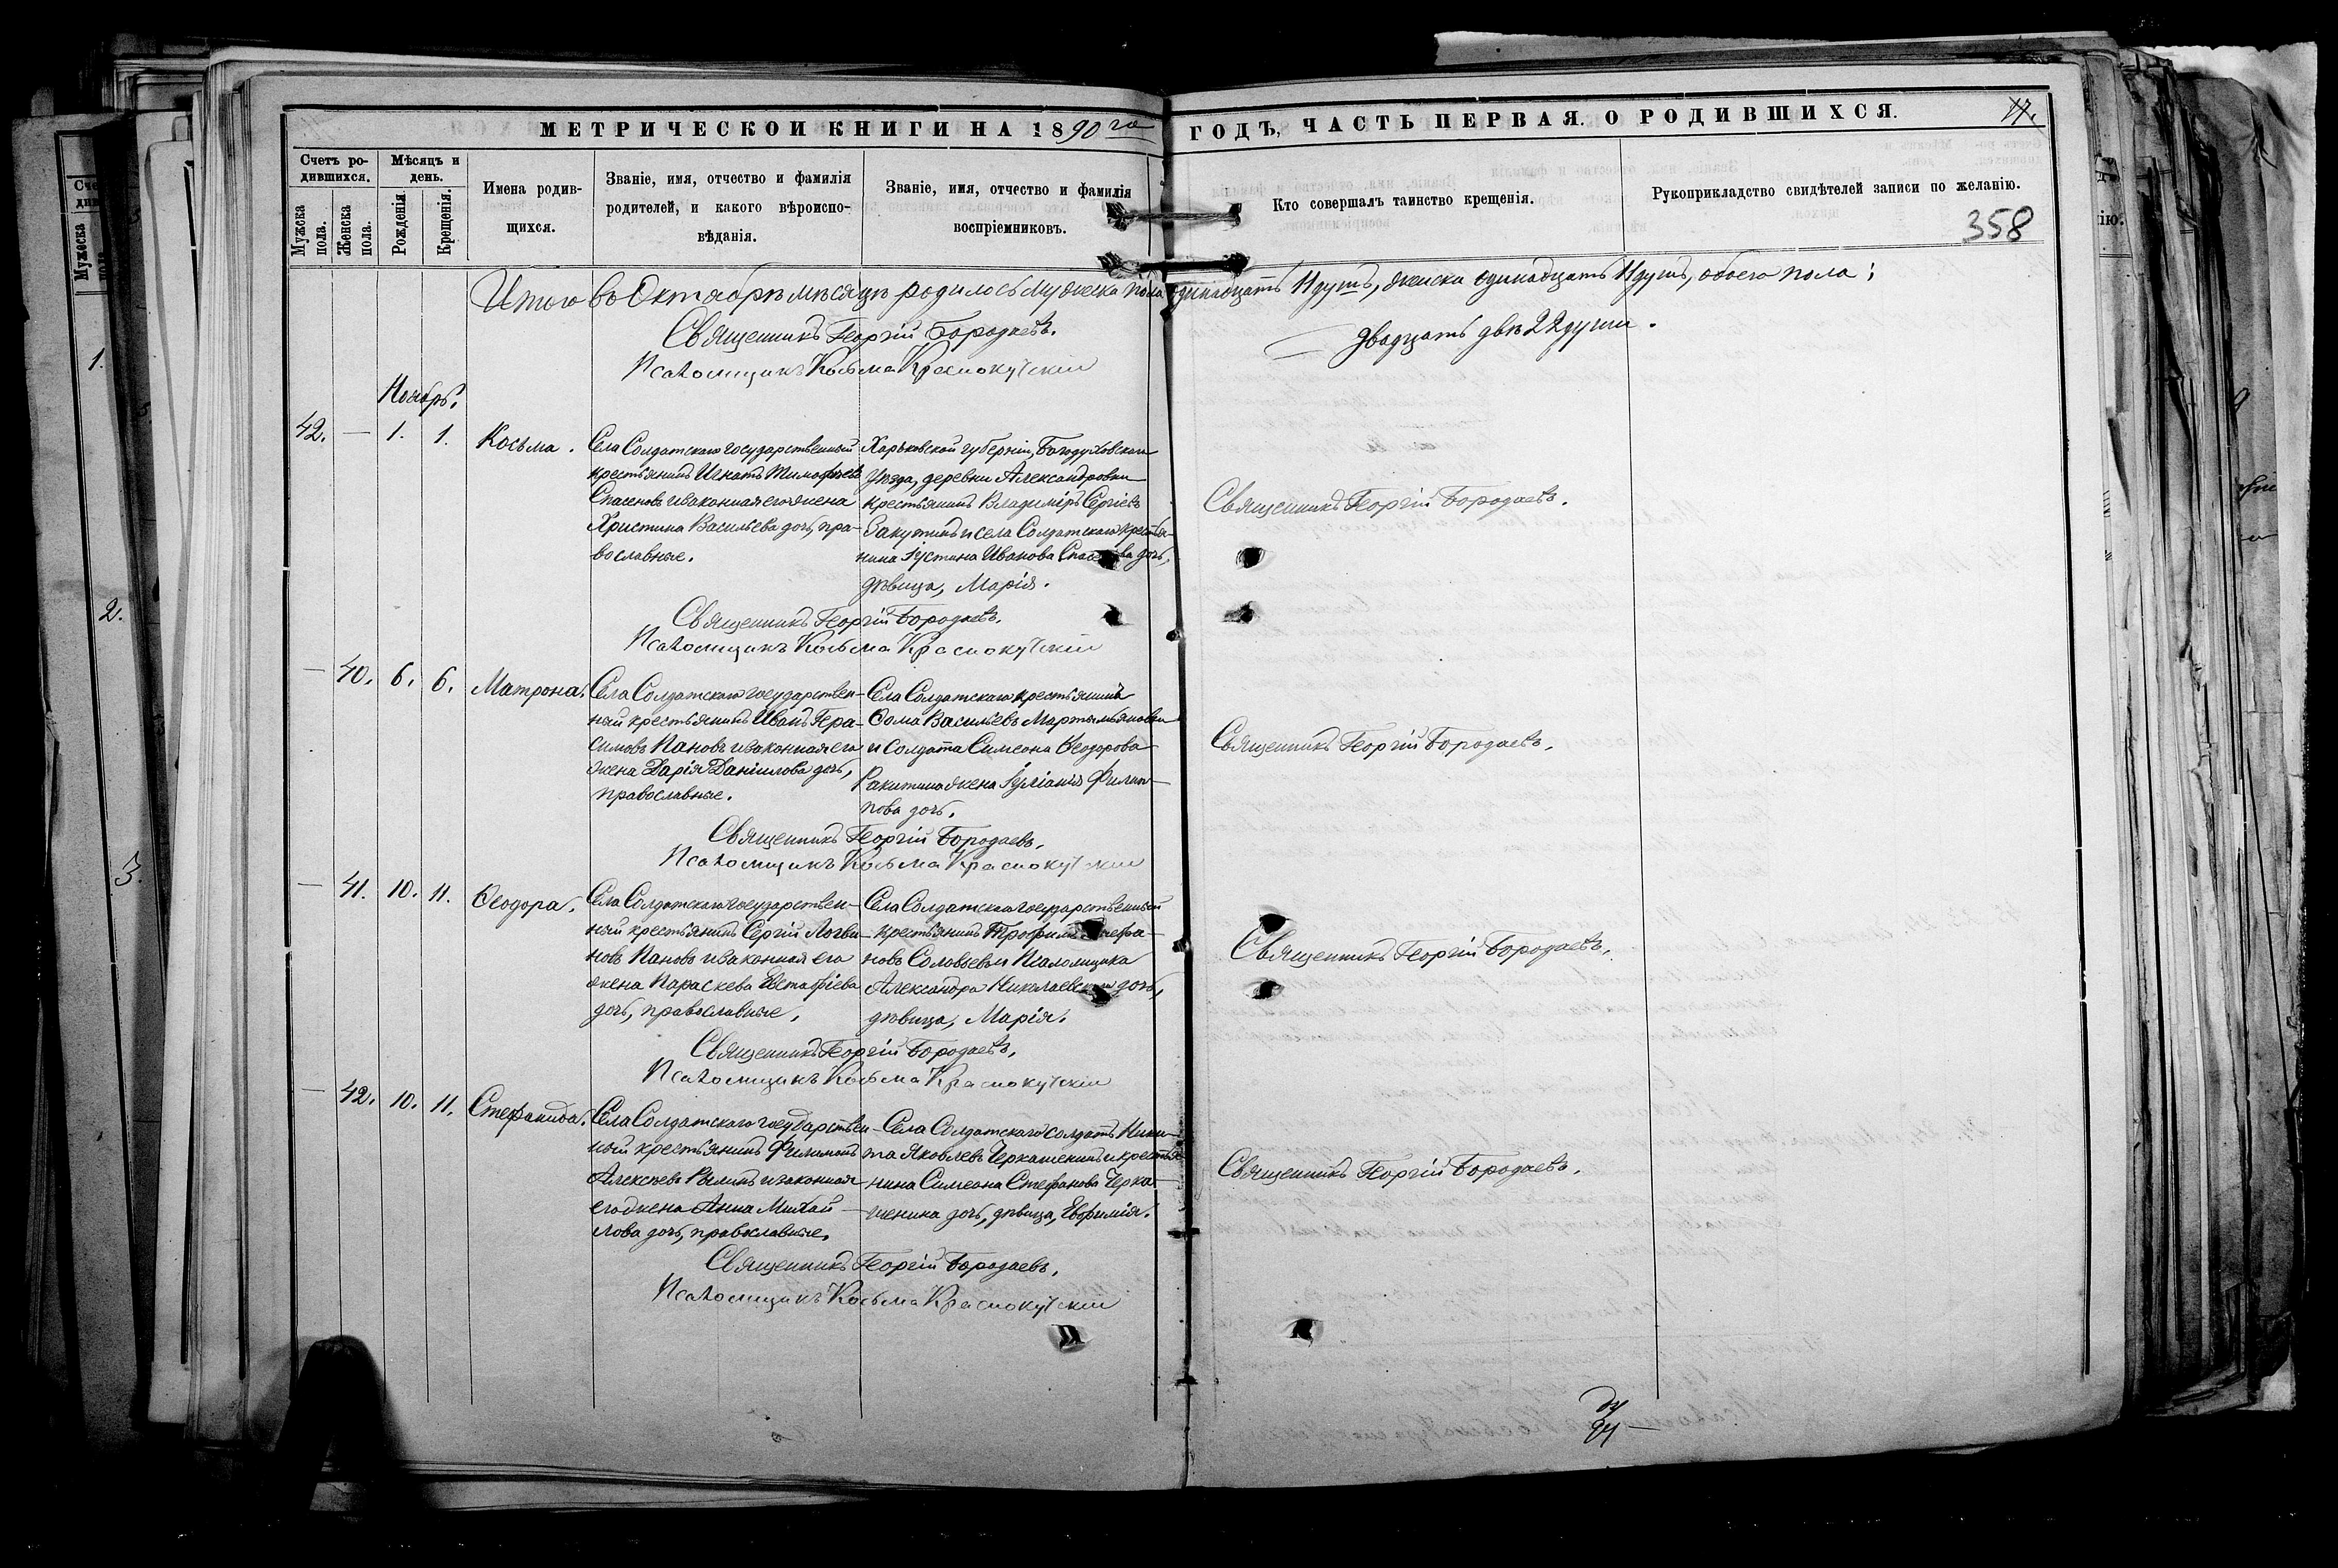 МЕТРИЧЕСКОЙ КНИГИ НА 1890го ГОДЪ, ЧАСТЬ ПЕРВАЯ. О РОДИВШИХСЯ. 17.
Счетъ родившихся.
Мужеска пола.
Женска пола.
Мѣсяцъ и день.
Рожденія
Крещенія.
Имена родив-
щихся.
Званіе, имя, отчество и фамилія
родителей, и какого вѣроиспо-
вѣданія.
Званіе, имя, отчество и фамилія
воспріемниковъ.
Кто совершалъ таинство крещенія.
Рукоприкладство свидѣтелей записи по желанію.
358
Итого въ Октябрѣ мѣсяцѣ родилось мужеска пола одинадцать 11 душъ, женска одинадцать 11 душъ, обоего пола:
двадцать двѣ 22 души.
Священникъ Георгій Бородаевъ.
Псаломщикъ Косьма Краснокутскій
Ноябрь.
42. — 1. 1. Косьма.
Села Солдатскаго государственный
крестьянинъ Игнатъ Тимофѣевъ
Спасеновъ и законная его жена
Христина Васильева дочь, пра-
вославные.
Харьковской губерніи, Богодуховскаго
Уѣзда, деревни Александровки
крестьянинъ Владиміръ Сергіевъ
Закутинъ и села Солдатскаго крестья-
нина Іустина Иванова дочь,
дѣвица, Марія.
Священникъ Георгій Бородаевъ.
Священникъ Георгій Бородаевъ.
Псаломщикъ Косьма Краснокутскій
— 40. 6. 6. Матрона.
Села Солдатскаго государствен-
ный крестьянинъ Иванъ Гера-
симовъ Пановъ и законная его
жена Дарія Даніилова дочь,
православные.
Села Солдатскаго крестьянинъ
Ѳома Васильевъ
и солдата Симеона Ѳеодорова
Ракитина жена Іуліанія Филип-
пова дочь.
Священникъ Георгій Бородаевъ.
Священникъ Георгій Бородаевъ.
Псаломщикъ Косьма Краснокутскій
— 41. 10. 11. Ѳеодора.
Села Солдатскаго государствен-
ный крестьянинъ Сергій Логви-
новъ Пановъ и законная его
жена Параскева Евстафіева
дочь, православные.
Села Солдатскаго государственный
крестьянинъ Трофимъ
новъ Соловьевъ и Псаломщика
Александра дочь,
дѣвица, Марія.
Священникъ Георгій Бородаевъ.
Священникъ Георгій Бородаевъ.
Псаломщикъ Косьма Краснокутскій
— 42. 10. 11. Стефанида.
Села Солдатскаго государствен-
ный крестьянинъ Филимонъ
Алексѣевъ Рылинъ и законная
его жена Анна Михай-
лова дочь, православные.
Села Солдатскаго солдатъ Ники-
та Яковлевъ Черкашенинъ и крестья-
нина Симеона Стефанова Черка-
шенина дочь, дѣвица, Евфимія.
Священникъ Георгій Бородаевъ.
Священникъ Георгій Бородаевъ.
Псаломщикъ Косьма Краснокутскій
1.
2.
3.